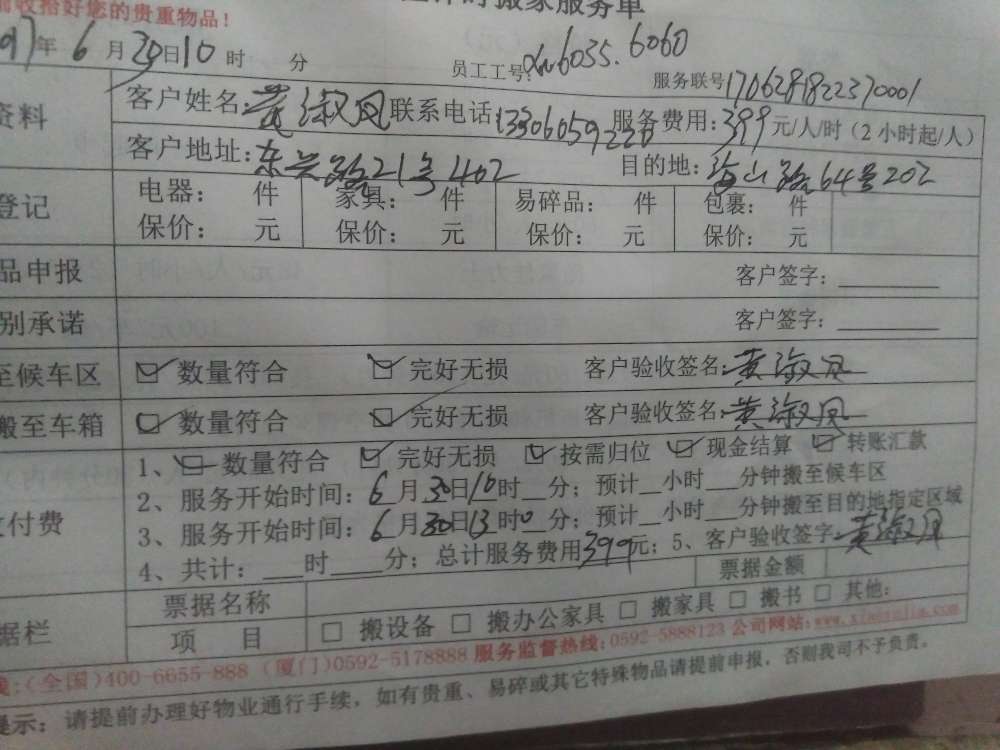 前收拾好您的贵重物品!
搬家服务单
年6月30日10时 分 员工工号: 6035.6060 服务联号1706281822370001
资料 客户姓名:黄淑凤 联系电话:13306059220 服务费用:399元/人/时(2小时起/人)
客户地址:东兴路21号402 目的地:海山路64号202
登记 电器: 件 家具: 件 易碎品: 件 包裹: 件
保价: 元 保价: 元 保价: 元 保价: 元
品申报 客户签字:
别承诺 客户签字:
至候车区 ☑ 数量符合 ☑ 完好无损 客户验收签名:黄淑凤
搬至车箱 ☑ 数量符合 ☑ 完好无损 客户验收签名:黄淑凤
1、☑ 数量符合 ☑ 完好无损 ☑ 按需归位 ☑ 现金结算 ☑ 转账汇款
2、服务开始时间:6月30日10时__分;预计__小时___分钟搬至候车区
付费 3、服务开始时间:6月30日13时0分;预计__小时___分钟搬至目的地指定区域
4、共计:___时____分;总计服务费用399元;5、客户验收签字:黄淑凤
据栏 票据名称 票据金额
项 目 □ 搬设备 □ 搬办公家具 □ 搬家具 □ 搬书 □ 其他:
线:(全国)400-6655-888 (厦门)0592-5178888 服务监督热线:0592-5888123 公司网站:
提示: 请提前办理好物业通行手续,如有贵重、易碎或其它特殊物品请提前申报,否则我司不予负责。